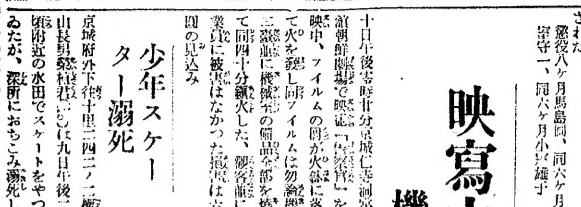 された
懲役八ヶ月馬島、同六ヶ月
守一、同六ヶ月小
映寫
機
十日午後零時廿分京城仁寺洞
舘朝鮮劇場で映畫『檢察官』を
映中、フイルムの
て火を發し同フイルムは勿論機
三臺並に機械室の備品全部を燒
て同四十分鎭火した、觀客並に
業員に被害はなかつた損害は六
圓の見込み
少年スケー
ター溺死
京城府外下往十里二四二ノ二
山長男 君 は九日午後二
頃附近の水田でスケートをやつ
ゐたが、深所におちこみ溺死し